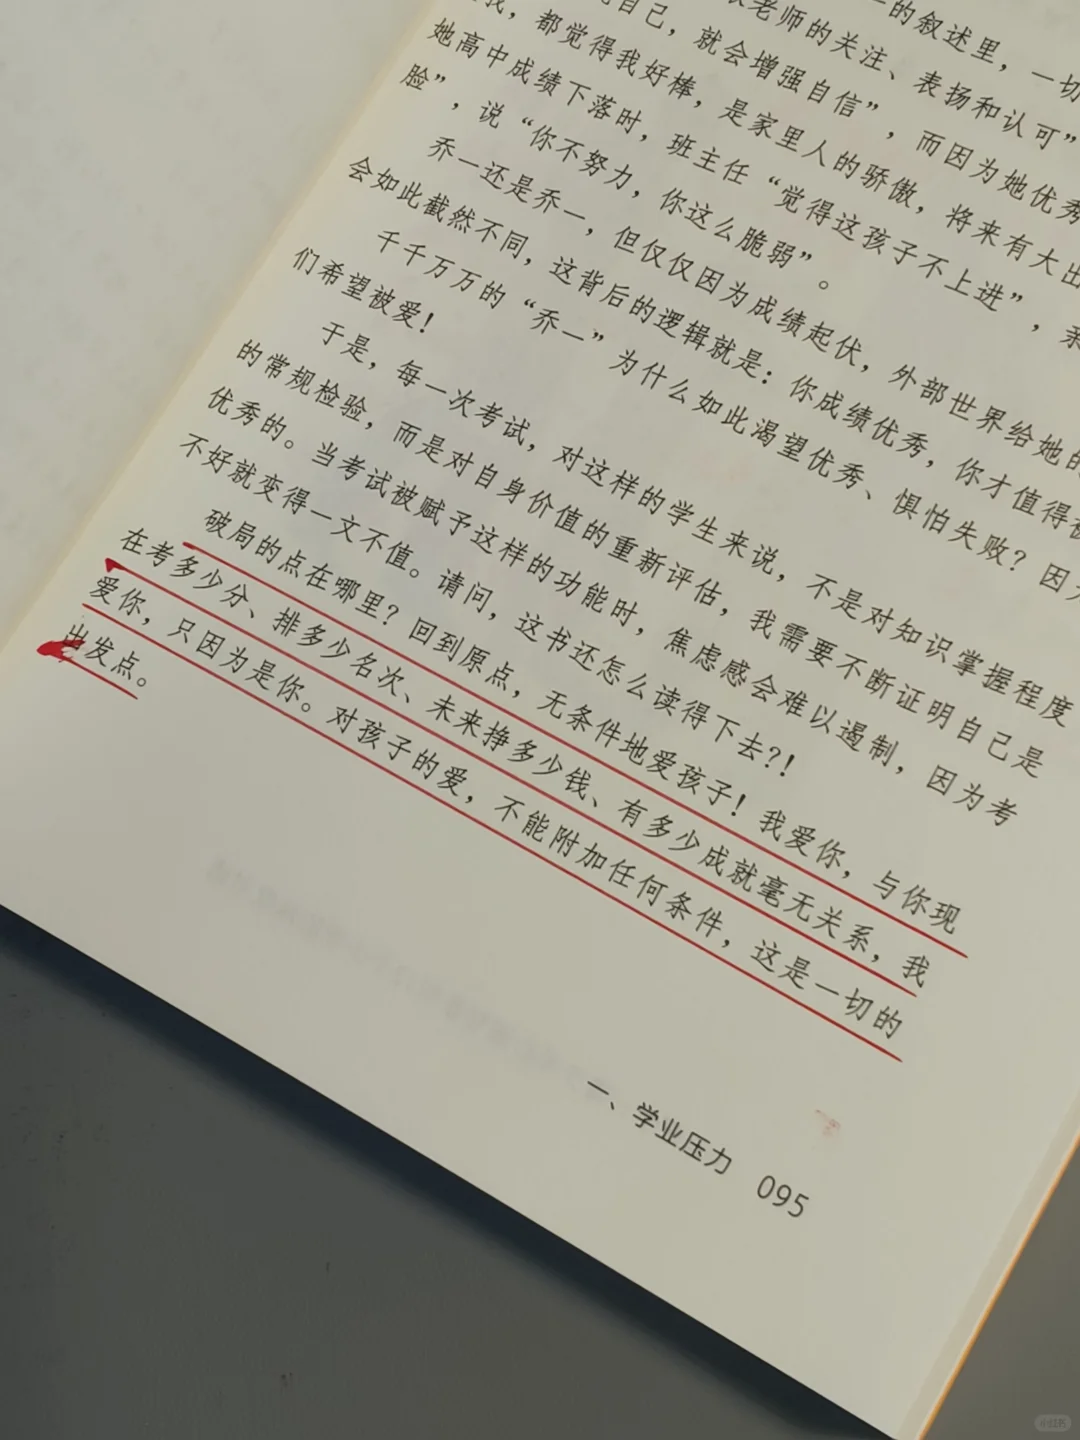 一的叙述里，一切
老师的关注、表扬和认可”
自己，就会增强自信”，而因为她优秀
我，都觉得我好棒，是家里人的骄傲，将来有大出
她高中成绩下落时，班主任“觉得这孩子不上进”，亲
脸”，说“你不努力，你这么脆弱”。
乔一还是乔一，但仅仅因为成绩起伏，外部世界给她的
会如此截然不同，这背后的逻辑就是：你成绩优秀，你才值得被
千千万万的“乔一”为什么如此渴望优秀、惧怕失败？因为
们希望被爱！
于是，每一次考试，对这样的学生来说，不是对知识掌握程度
的常规检验，而是对自身价值的重新评估，我需要不断证明自己是
优秀的。当考试被赋予这样的功能时，焦虑感会难以遏制，因为考
不好就变得一文不值。请问，这书还怎么读得下去?!
破局的点在哪里？回到原点，无条件地爱孩子！我爱你，与你现
在考多少分、排多少名次、未来挣多少钱、有多少成就毫无关系，我
爱你，只因为是你。对孩子的爱，不能附加任何条件，这是一切的
出发点。
一、学业压力 095